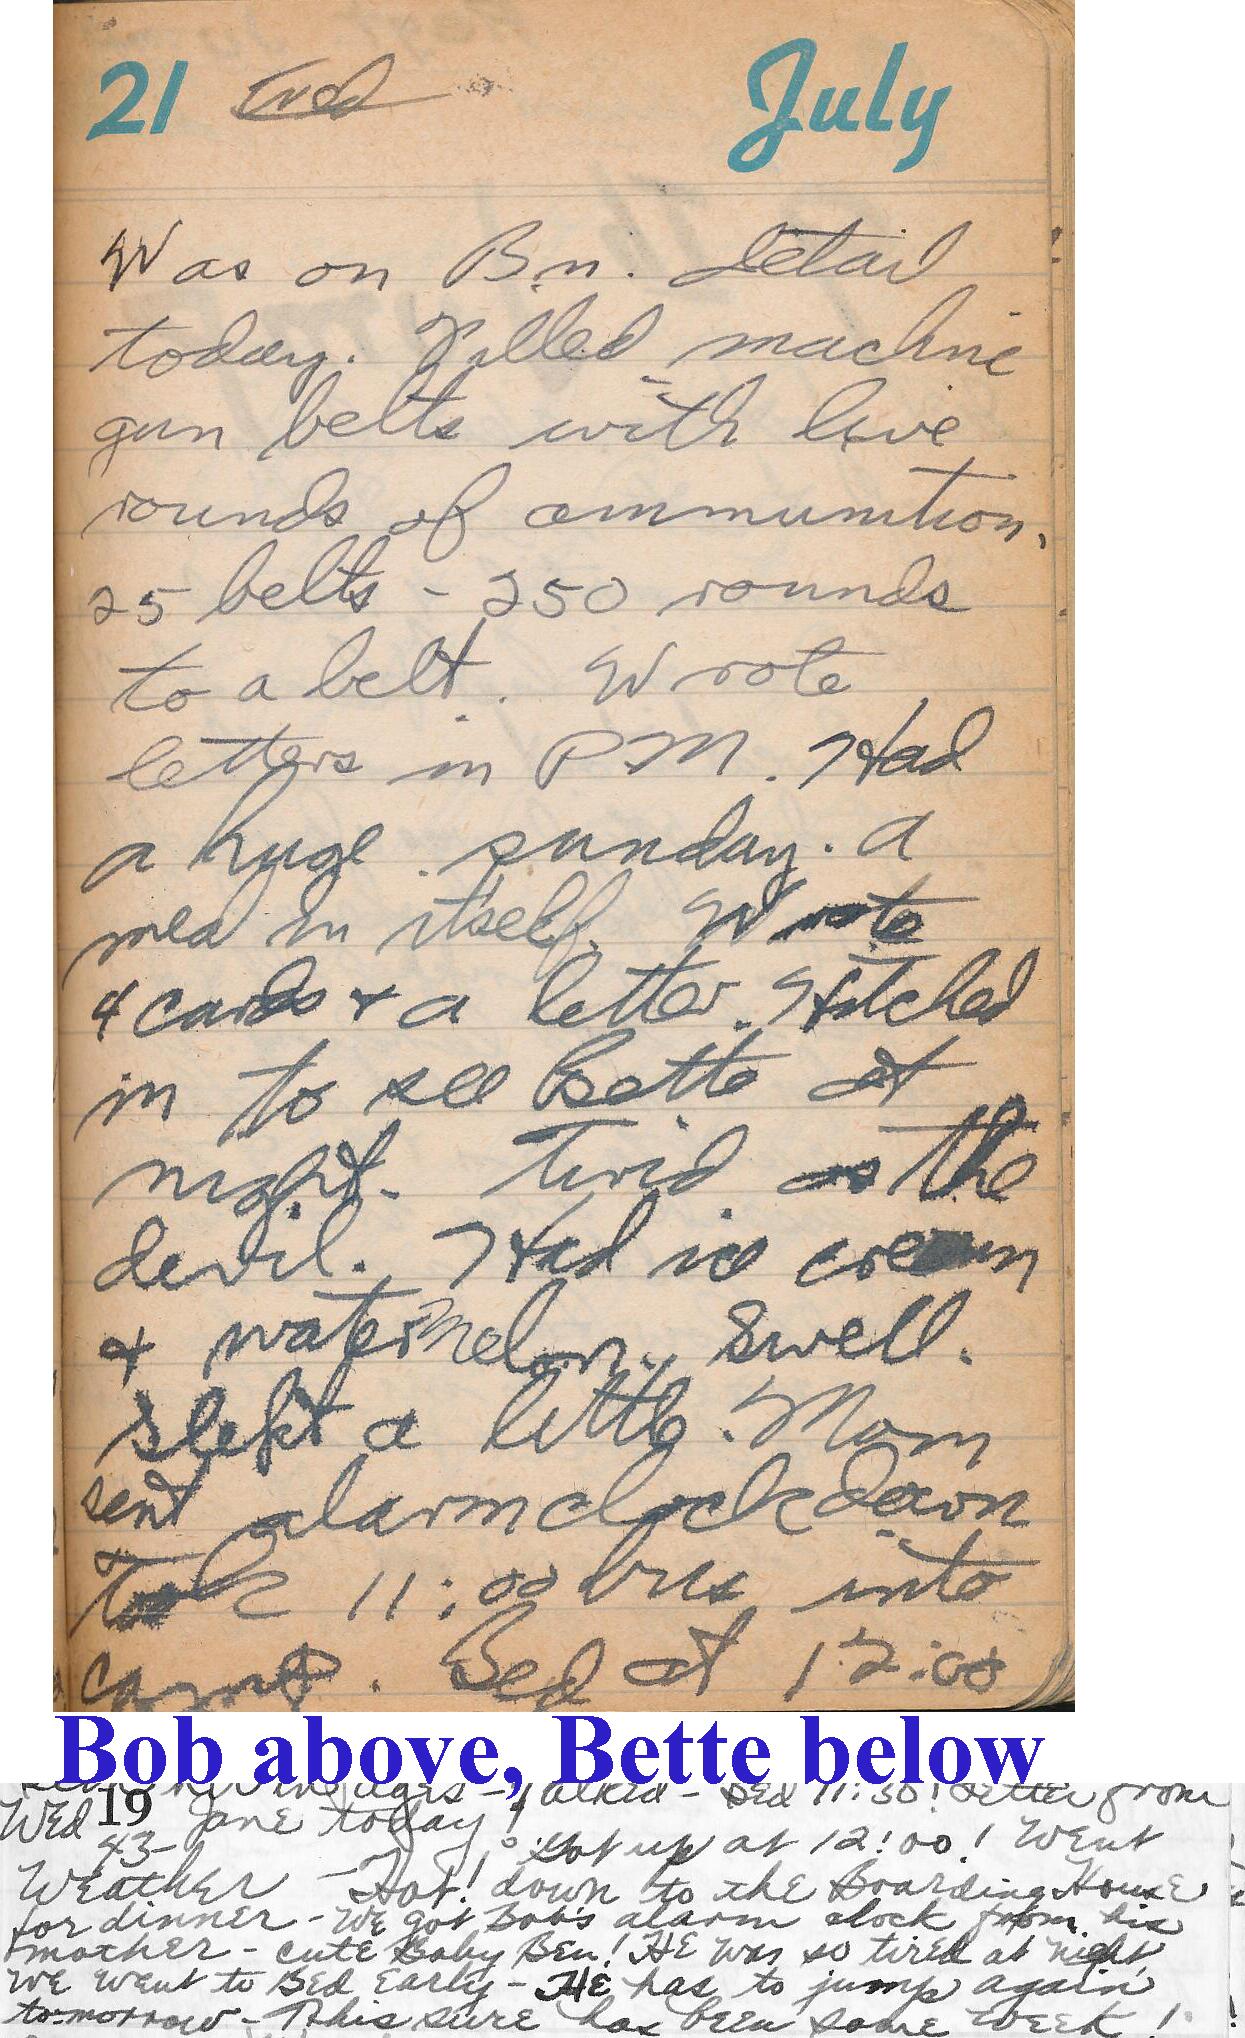 21 Wed July
Was on Bn. Detail
today. Filled machine
gun belts with live
rounds of ammunition.
25 belts - 250 rounds
to a belt. Wrote
letters in PM. Had
a huge sunday. A
meal in itself. Wrote
4 cards + a letter. Hitched
in to see Bette at
night. Tired as the
devil. Had ice cream
+ watermelon. Swell.
Slept a little. Mom
sent alarm clock down
Took 11:00 bus into
camp. Bed at 12:00
Bob above, Bette below
ages - Talked - Bed 11:30! Letter from
Wed 19 Jane today!
43- Got up at 12:00! Went
Weather - Hot! down to the Boarding House
for dinner - We got Bob's alarm clock from his
mother - cute Baby Ben! He was so tired at night,
We went to Bed Early - He has to jump again
tomorrow - This sure has been some week!